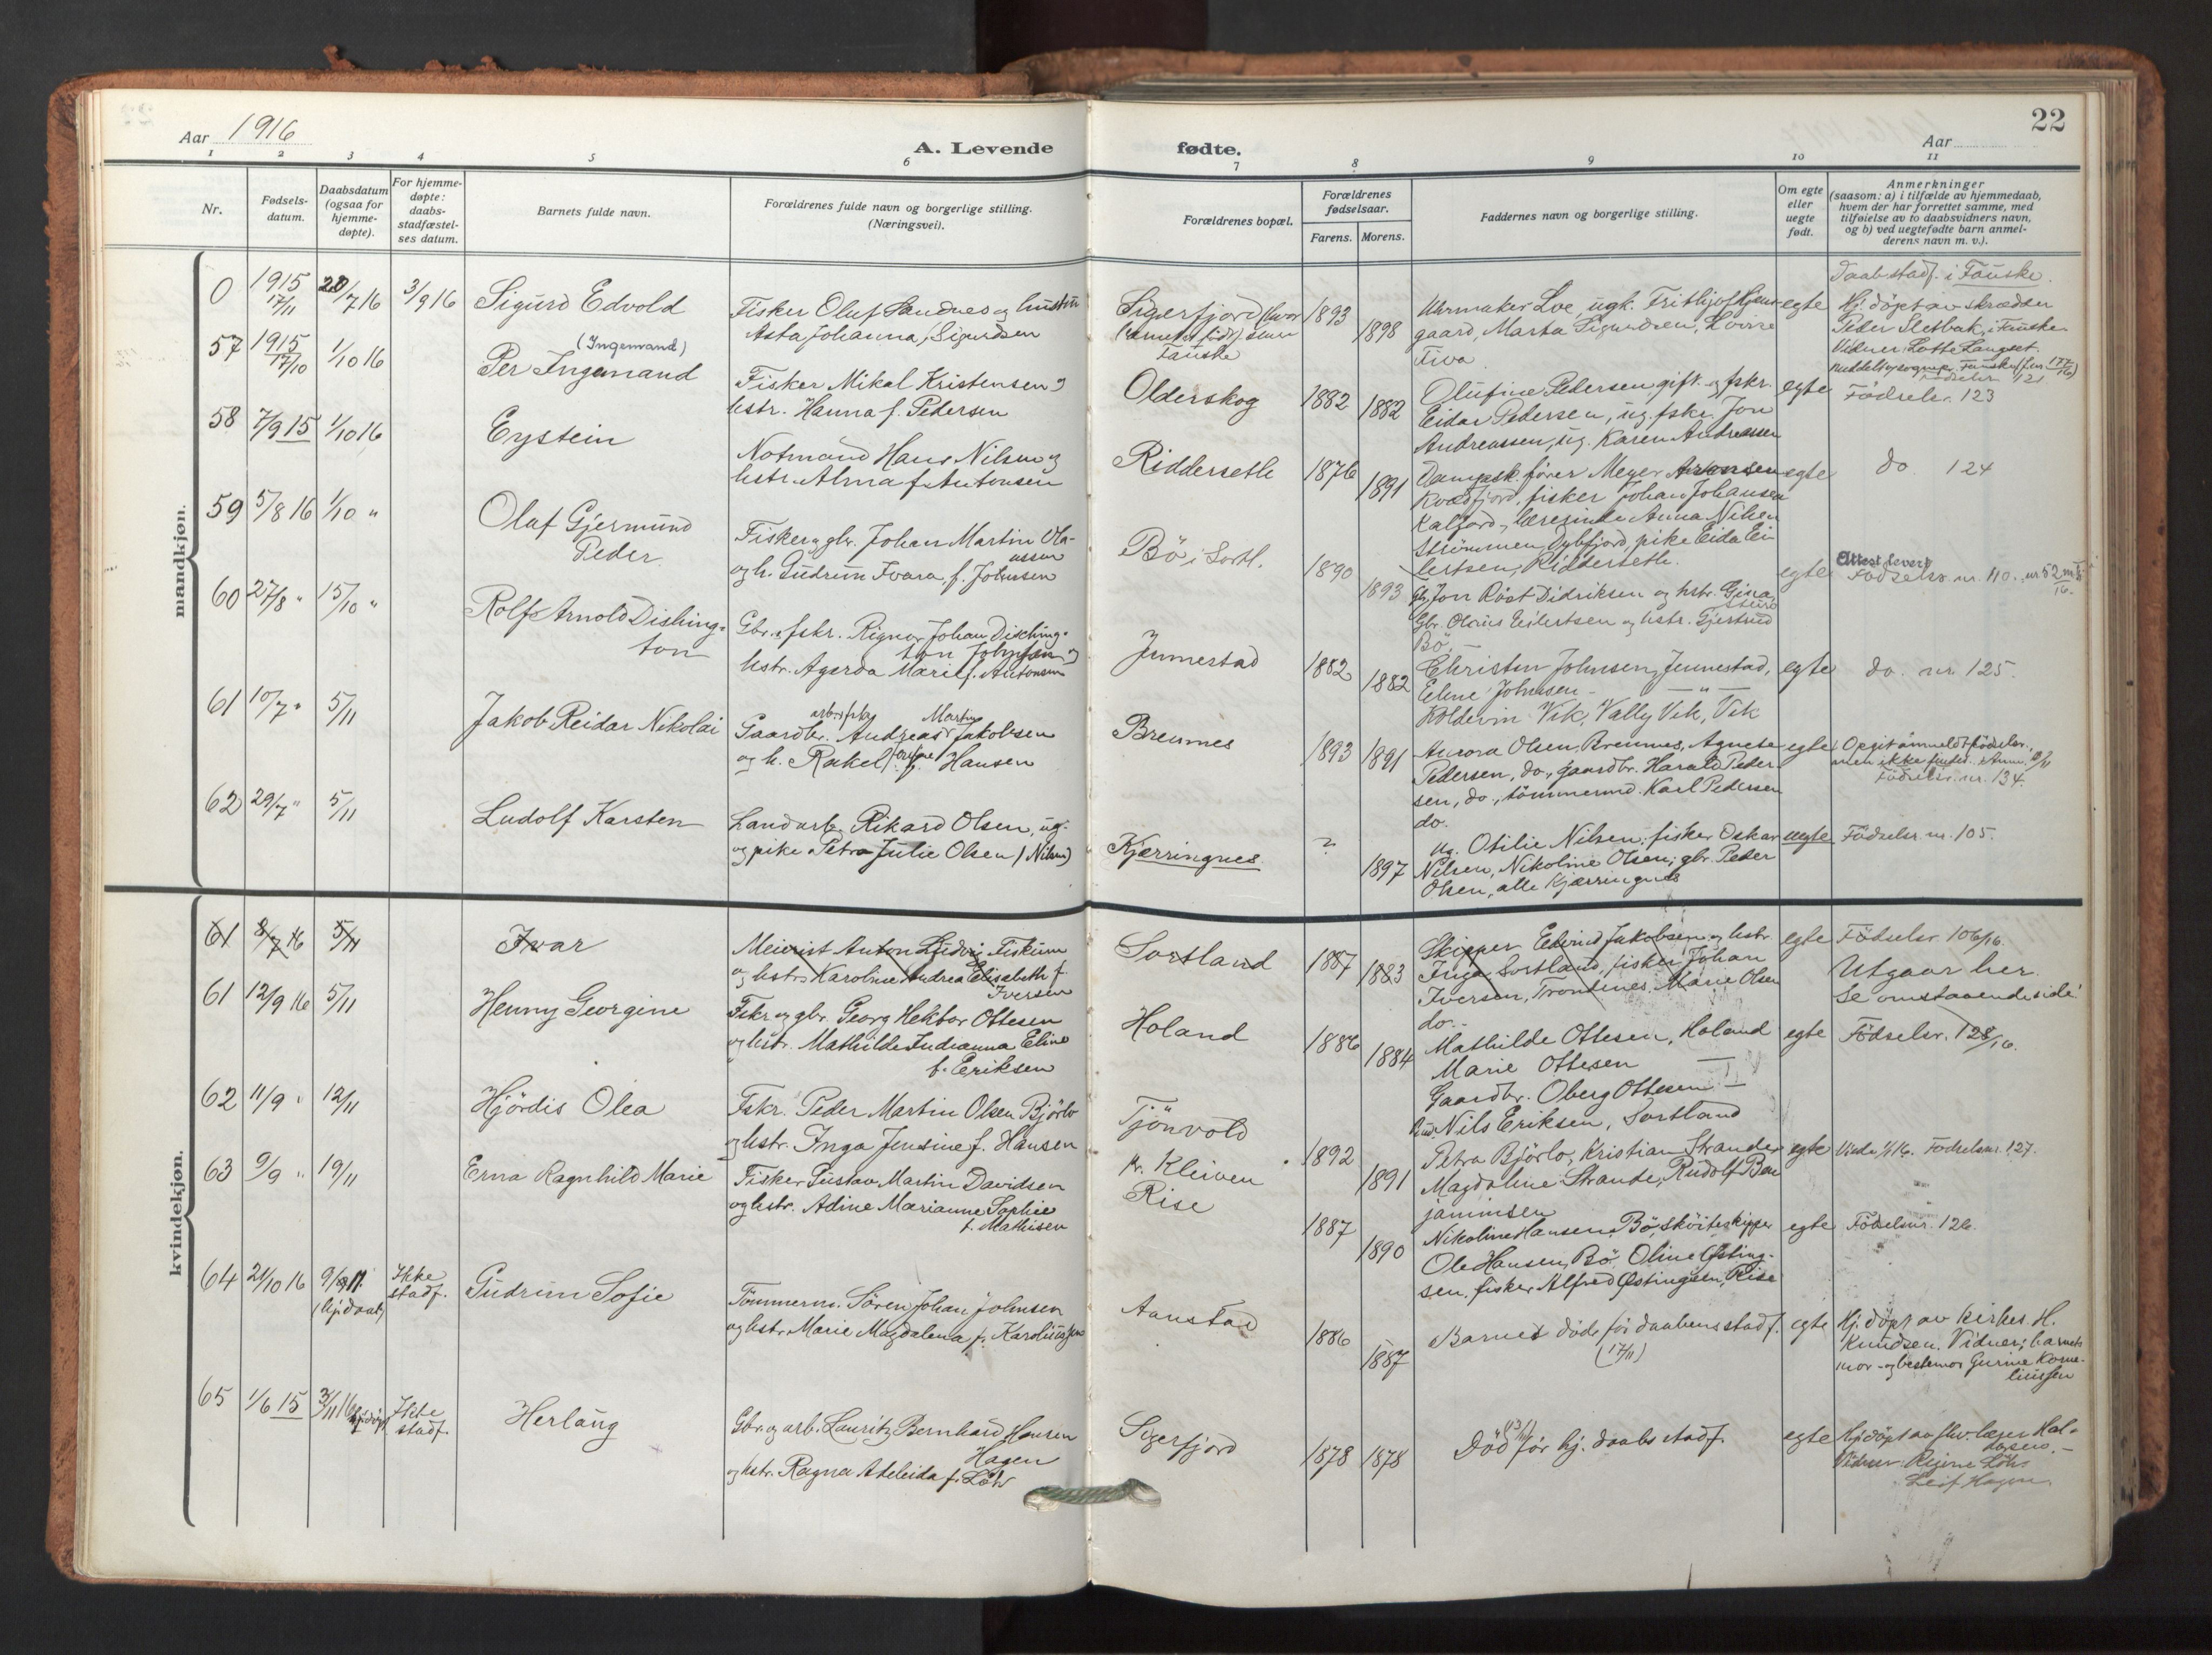 Aar 1916
A. Levende fødte.
Aar
22
1 2 3 4 5 6 7 8 9 10 11
Nr.
Fødsels-
datum.
Daabsdatum
(ogsaa for
hjemme-
døpte).
For hjemme-
døpte:
daabs-
stadfæstel-
ses datum.
Barnets fulde navn.
Forældrenes fulde navn og borgerlige stilling.
(Næringsvei).
Forældrenes bopæl.
Forældrenes
fødselsaar.
Farens. Morens.
Faddernes navn og borgerlige stilling.
Om egte
eller
uegte
født.
Anmerkninger
(saasom: a) i tilfælde av hjemmedaab,
hvem der har forrettet samme, med
tilføielse av to daabsvidners navn,
og b) ved uegtefødte barn anmel-
derens navn m. v.).
mandkjøn.
0 1915 17/11 20/7 16 3/9 16 Sigurd Edvold
Fisker Oluf Sandnes og hustru
Asta Johanna, Sigurdsen
Sigerfjord (hvor
barnet er født) samt
Fauske
1893 1898
Uhrmaker Loe, ugk. Frithjof Hjem-
gaard, Marta Sigurdsen, Lovise
Tiva
egte
Daab stadf. i Fauske.
Hj. döpt av skrædder
Peder Sletbak, i Fauske
Vidner: Lotte Langset.
57 1915 17/10 1/10 16 (Ingemand)
Per Ingemand
Fisker Mikal Kristensen og
hstr. Hanna f. Pedersen
Olderskog
1882 1882
Olufine Pedersen gift. og fskr.
Eidar Pedersen, ug. fskr. Jon
Andreassen, ug. Karen Andreassen
egte
Födselsr. 123
58 7/9 15 1/10 16 Eystein
Notmand Hans Nilsen og
hstr. Alma f. Antonsen
Ridderseth
1876 1891
Dampsk. fører Meyer Antonsen
Kvædfjord, fisker Johan Johansen
Kalfjord, lærerinde Anna Nilsen
Strömmen, Dybfjord, pike Eida Ei-
lertsen, Ridderseth.
egte
do 124
59 5/8 16 1/10 " Olaf Gjermund
Peder
Fisker og gbr. Johan Martin Ola-
ussen
og h. Gudrun Ivara f. Johnsen
Bö i Sortl.
1890 1893
Gbr. Jon Röst Didriksen og hstr. Gina,
Gbr. Olaus Eilertsen og hstr. Gjertrud
Bö.
egte
Attest levert
Födselsr. nr. 110.
60 27/8 " 15/10 " Rolf Arnold Dishing-
ton
Gbr. og fskr. Rignor Johan Disching-
ton Johnsen og
hstr. Agarda Marie f. Antonsen
Jennestad
1882 1882
Christen Johnsen, Jennestad,
Eline Johnsen — " —
Koldevin Vik, Vally Vik, Vik
egte
do. nr. 125.
61 10/7 " 5/11 Jakob Reidar Nikolai
Gaardbr. Andreas Martin Jakobsen
og h. Rakel f. Hansen
Breines
1893 1891
Aurora Olsen, Breines, Agnete
Pedersen, do., gaardbr. Harald Peder-
sen, do., tömmermd. Karl Pedersen
do.
egte
Opgit anmeldt fødselsr.,
men ikke fundet.
Födselsr. nr. 134.
62 29/7 " 5/11 Ludolf Karsten
Landarb. Rikard Olsen, ug.
og pike Petra Julie Olsen (Nilsen)
Kjærringnes
? 1897
Ug. Otilie Nilsen; fisker Oskar
Nilsen, Nikoline Olsen; gbr. Peder
Olsen, alle Kjærringnes
uegte
Födselsr. nr. 105.
kvindekjøn.
61 8/7 16 5/11 Ivar
Meierist Anton Ludvig Fiskum
og hstr. Karoline Andrea Elisabeth f.
Iversen
Sortland
1887 1883
Skipper Edvind Jakobsen og hstr.
Inga, Sortland, fisker Johan
Iversen, Trondenes, Marie Olsen
do.
egte
Födselsr. 106/16.
Utgaar her.
Se omstaaende side!
61 12/9 16 5/11 Henny Georgine
Fskr. og gbr. Georg Hektor Ottesen
og hstr. Mathilde Indianna Eline
f. Eriksen
Holand
1886 1884
Mathilde Ottesen, Holand
Marie Ottesen —
Gaardbr. Oberg Ottesen —
Nils Eriksen, Sortland
egte
Födselsr. 128/16.
62 11/9 " 12/11 Hjördis Olea
Fskr. Peder Martin Olsen Björlo
og hstr. Inga Jensine f. Hansen
Tjönvold
pr. Kleiven
1892 1891
Petra Björlo, Kristian Strande,
Magdaline Strande, Rudolf Ben-
jaminsen
egte
Födselsnr. 127.
63 9/9 " 19/11 Erna Ragnhild Marie
Fisker Gustav Martin Davidsen
og hstr. Adine Marianne Sophie
f. Mathisen
Rise
1887 1890
Nikoline Hansen, Bö, sköiteskipper
Ole Hansen, Bö, Oline Østing-
sen, fisker Alfred Østingsen, Rise
egte
Födselsnr. 126.
64 21/10 16 9/11 (hj. daab) Ikke
stadf.
Gudrun Sofie
Tömmerm. Sören Johan Johnsen
og hstr. Marie Magdalena f. Karoliussen
Aanstad
1886 1887
Barnet döde för daabens stadf.
(17/11)
egte
Hj. döpt av kirkes. H.
Knudsen. Vidner: barnets
mor og bestemor Gurine Korne-
liussen
65 1/6 15 3/11 16 hj. döpt Ikke
stadf.
Herlaug
Gbr. og arb. Lauritz Bernhard Hansen
Hagen
og hstr. Ragna Adeleida f. Löhr
Sigerfjord
1878 1878
Död för hj. daabs stadf.
egte
Vidner: Regine Löhr
Leif Hagen